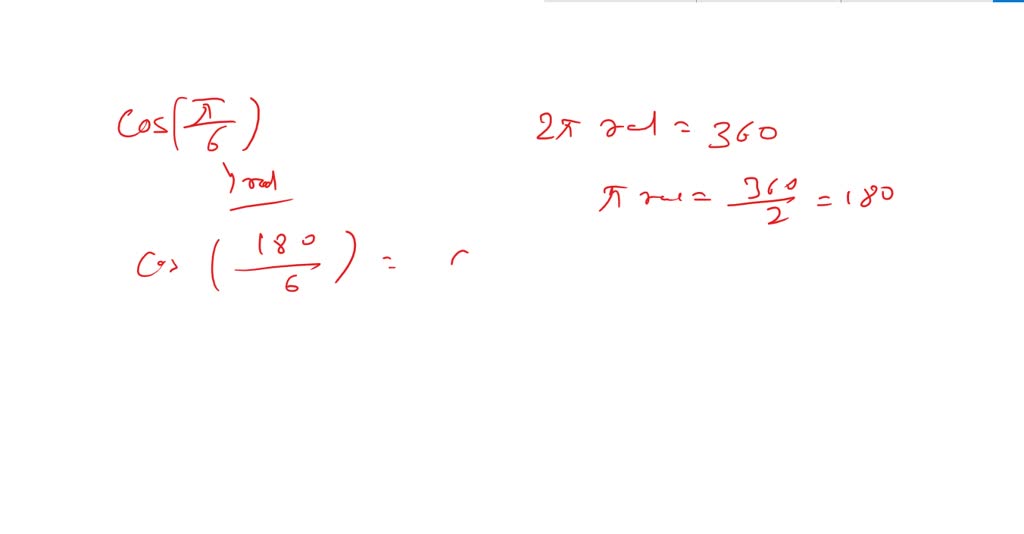 Cos(π/6)
↳ rad
Cos (180/6) = c
2π rad = 360
π rad = 360/2 = 180